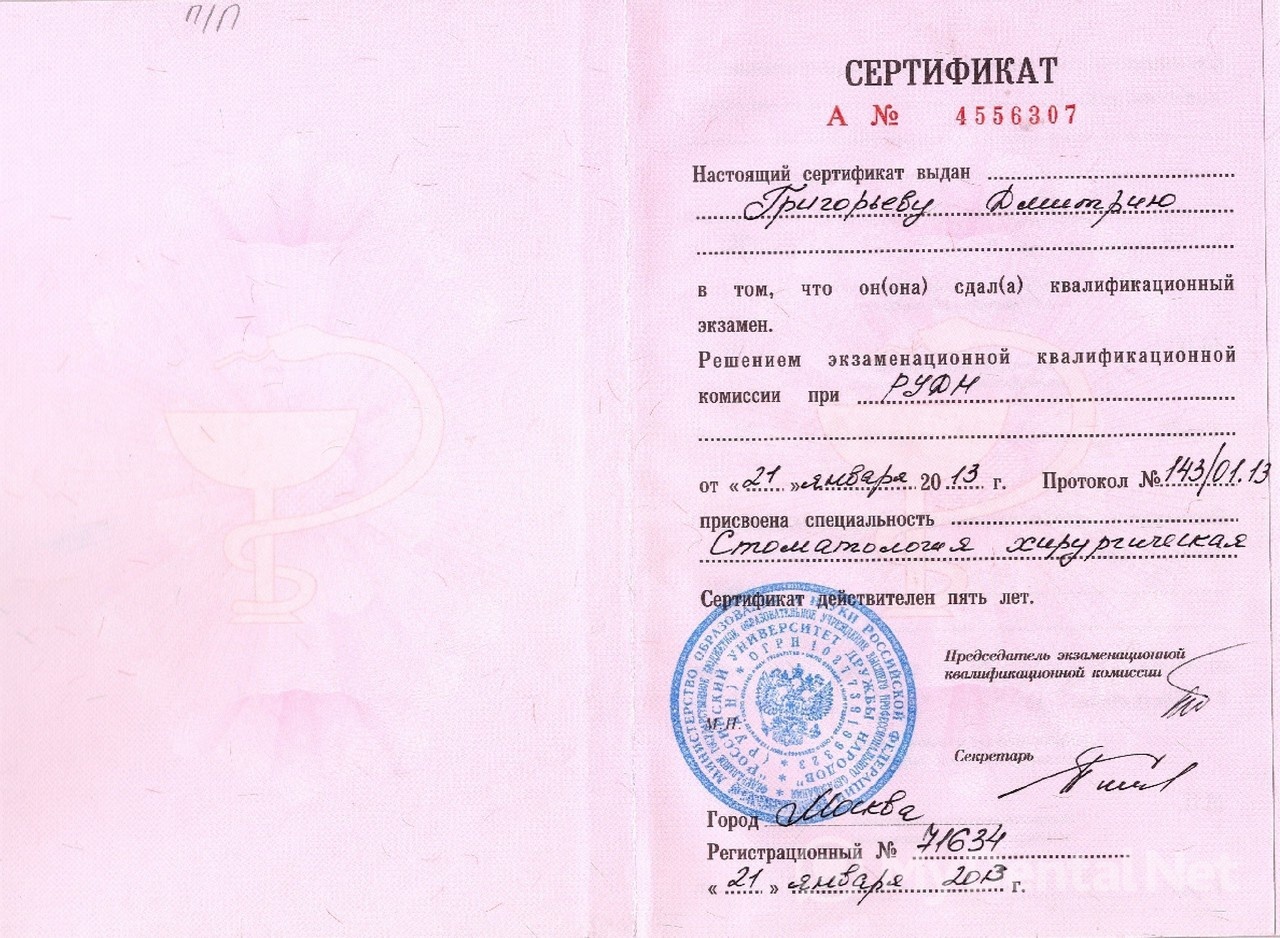 П/П
СЕРТИФИКАТ
А № 4556307
Настоящий сертификат выдан
Григорьеву Дмитрию
в том, что он(она) сдал(а) квалификационный
экзамен.
Решением экзаменационной квалификационной
комиссии при РУДН
от «21» января 2013 г. Протокол № 143/01.13
присвоена специальность
Стоматология хирургическая
Сертификат действителен пять лет.
Председатель экзаменационной
квалификационной комиссии
М.П.
Секретарь
Город Москва
Регистрационный № 71634
«21» января 2013 г.
МИНИСТЕРСТВО ОБРАЗОВАНИЯ И НАУКИ РОССИЙСКОЙ ФЕДЕРАЦИИ
"РОССИЙСКИЙ УНИВЕРСИТЕТ ДРУЖБЫ НАРОДОВ"
(РУДН) * ОГРН 1027739189323 *